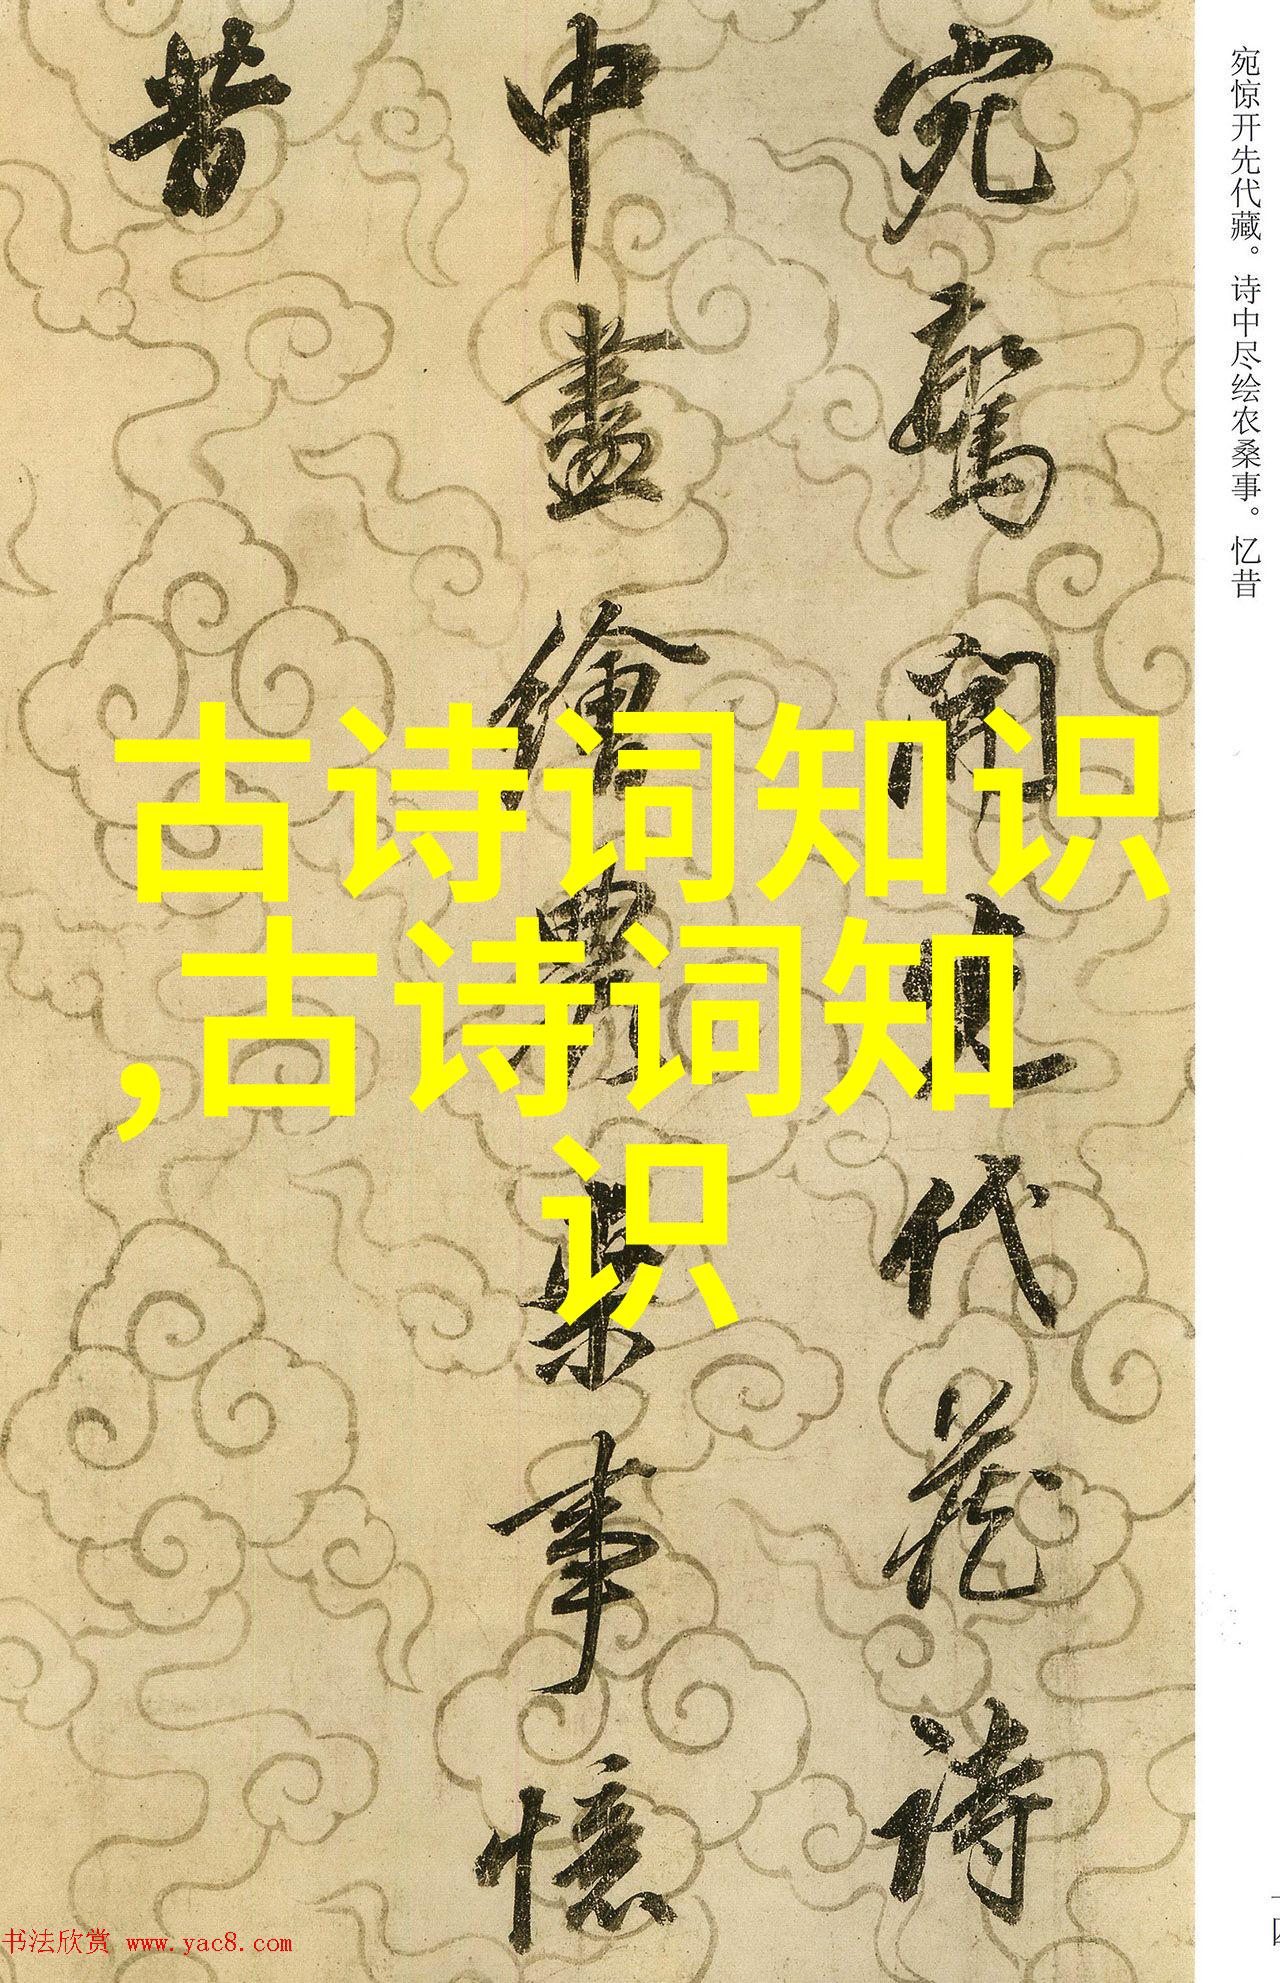 宛驚開先代藏詩
中盡繪農桑事憶
昔
宛惊开先代藏。诗中尽绘农桑事。忆昔
古诗词知识
,古诗词知
识
书法欣赏 www.yac8.com